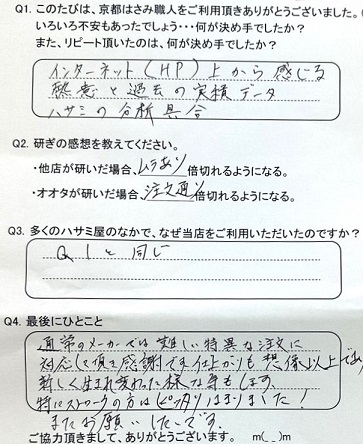 Q1. このたびは、京都はさみ職人をご利用頂きありがとうございました。(
いろいろ不安もあったでしょう・・・何が決め手でしたか?
また、リピート頂いたのは、何が決め手でしたか?
インターネット(HP)上から感じる
熱意と過去の実積データ
ハサミの分析具合
Q2. 研ぎの感想を教えてください。
・他店が研いだ場合、ムラあり倍切れるようになる。
・オオタが研いだ場合、注文通り倍切れるようになる。
Q3. 多くのハサミ屋のなかで、なぜ当店をご利用いただいたのですか?
Q1と同じ
Q4. 最後にひとこと
通常のメーカーでは難しい特異な注文に
対応して頂き感謝です。仕上がりも想像以上で
新しく生まれ変わった様な気もします。
特にストロークの方はピッタリはまりました!
またお願いしたいです。
ご協力頂きまして、ありがとうございます m(_ _)m